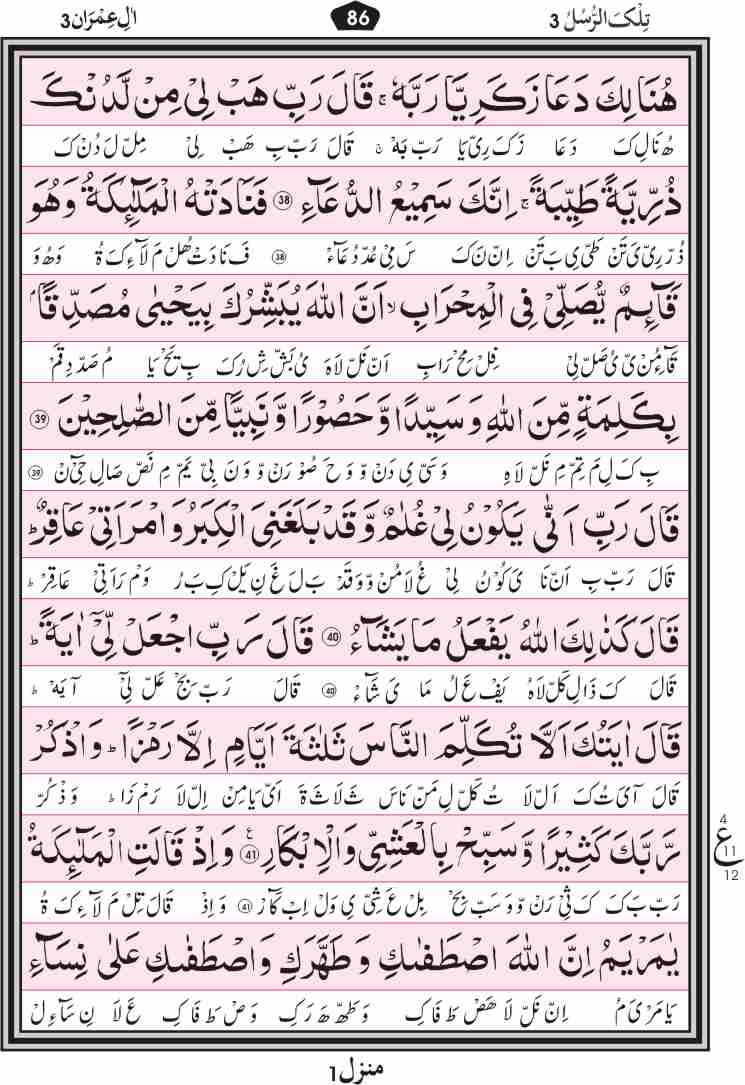 تِلْكَ الرُّسُلُ 3
86
اٰلِ عِمْرَان 3
هُنَالِكَ دَعَا زَكَرِيَّا رَبَّهٗ ۚ قَالَ رَبِّ هَبْ لِیْ مِنْ لَّدُنْكَ
هُ نَالِ كَ دَعَا زَكَ رِىْ يَا رَبّ بَهٗ ۚ قَالَ رَبّ بِ هَبْ لِىْ مِلّ لَ دُنْ كَ
ذُرِّيَّةً طَيِّبَةً ۚ اِنَّكَ سَمِيْعُ الدُّعَآءِ ۝38 فَنَادَتْهُ الْمَلٰٓئِكَةُ وَهُوَ
ذُرّ رِىّ ىَ تَنْ طَىّ ىِ بَ تَنْ اِنّ نَ كَ سَ مِىْ عُدّ دُعَآءْ 38 فَ نَادَتْ هُلْ مَ لَآءِ كَ ةُ وَهُ وَ
قَآئِمٌ يُّصَلِّیْ فِی الْمِحْرَابِ ۙ اَنَّ اللّٰهَ يُبَشِّرُكَ بِيَحْيٰى مُصَدِّقًا ۢ
قَآءِ مُنْ ىْ ىُ صَلّ لِىْ فِلْ مِحْ رَابِ اَنّ نَلّ لَاهَ ىُ بَشّ شِ رُكَ بِ يَحْ يَا مُ صَدّ دِ قَمْ
بِكَلِمَةٍ مِّنَ اللّٰهِ وَسَيِّدًا وَّحَصُوْرًا وَّنَبِيًّا مِّنَ الصّٰلِحِيْنَ ۝39
بِ كَ لِ مَ تِمّ مِ نَلّ لَاهِ وَسَىّ ىِ دَنْ وْ وَ حَ صُوْ رَنْ وْ وَ نَ بِىّ يَمّ مِ نَصّ صَالِ حِىْ نْ 39
قَالَ رَبِّ اَنّٰى يَكُوْنُ لِیْ غُلٰمٌ وَّقَدْ بَلَغَنِیَ الْكِبَرُ وَامْرَاَتِیْ عَاقِرٌ ؕ
قَالَ رَبّ بِ اَنّ نَا ىَ كُوْنُ لِىْ غُ لَامُنْ وْ وَقَدْ بَ لَ غَ نِ يَلْ كِ بَ رُ وَمْ رَاَتِىْ عَاقِرْ ؕ
قَالَ كَذٰلِكَ اللّٰهُ يَفْعَلُ مَا يَشَآءُ ۝40 قَالَ رَبِّ اجْعَلْ لِّیْۤ اٰيَةً ؕ
قَالَ كَ ذَالِ كَلّ لَاهُ يَفْ عَ لُ مَا ىَ شَآءْ 40 قَالَ رَبّ بِجْ عَلّ لِىْۤ آيَهْ ؕ
قَالَ اٰيَتُكَ اَلَّا تُكَلِّمَ النَّاسَ ثَلٰثَةَ اَيَّامٍ اِلَّا رَمْزًا ؕ وَاذْكُرْ
قَالَ آىَ تُ كَ اَلّ لَا تُ كَلّ لِ مَنّ نَاسَ ثَ لَا ثَ ةَ اَىّ يَامِنْ اِلّ لَا رَمْ زَا ؕ وَ ذْ كُرّ
رَّبَّكَ كَثِيْرًا وَّسَبِّحْ بِالْعَشِیِّ وَالْاِبْكَارِ ۝41 ع وَاِذْ قَالَتِ الْمَلٰٓئِكَةُ
رَبّ بَ كَ كَ ثِىْ رَنْ وْ وَ سَبّ بِحْ بِلْ عَ شِىّ ىِ وَلْ اِبْ كَارْ 41 وَ اِذْ قَالَ تِلْ مَ لَآءِ كَ ةُ
4
ع 11
12
يٰمَرْيَمُ اِنَّ اللّٰهَ اصْطَفٰىكِ وَطَهَّرَكِ وَاصْطَفٰىكِ عَلٰى نِسَآءِ
يَا مَرْ ىَ مُ اِنّ نَلّ لَا هَصْ طَ فَا كِ وَ طَهّ هَ رَ كِ وَ صْ طَ فَا كِ عَ لَا نِ سَآءِ لْ
منزل 1